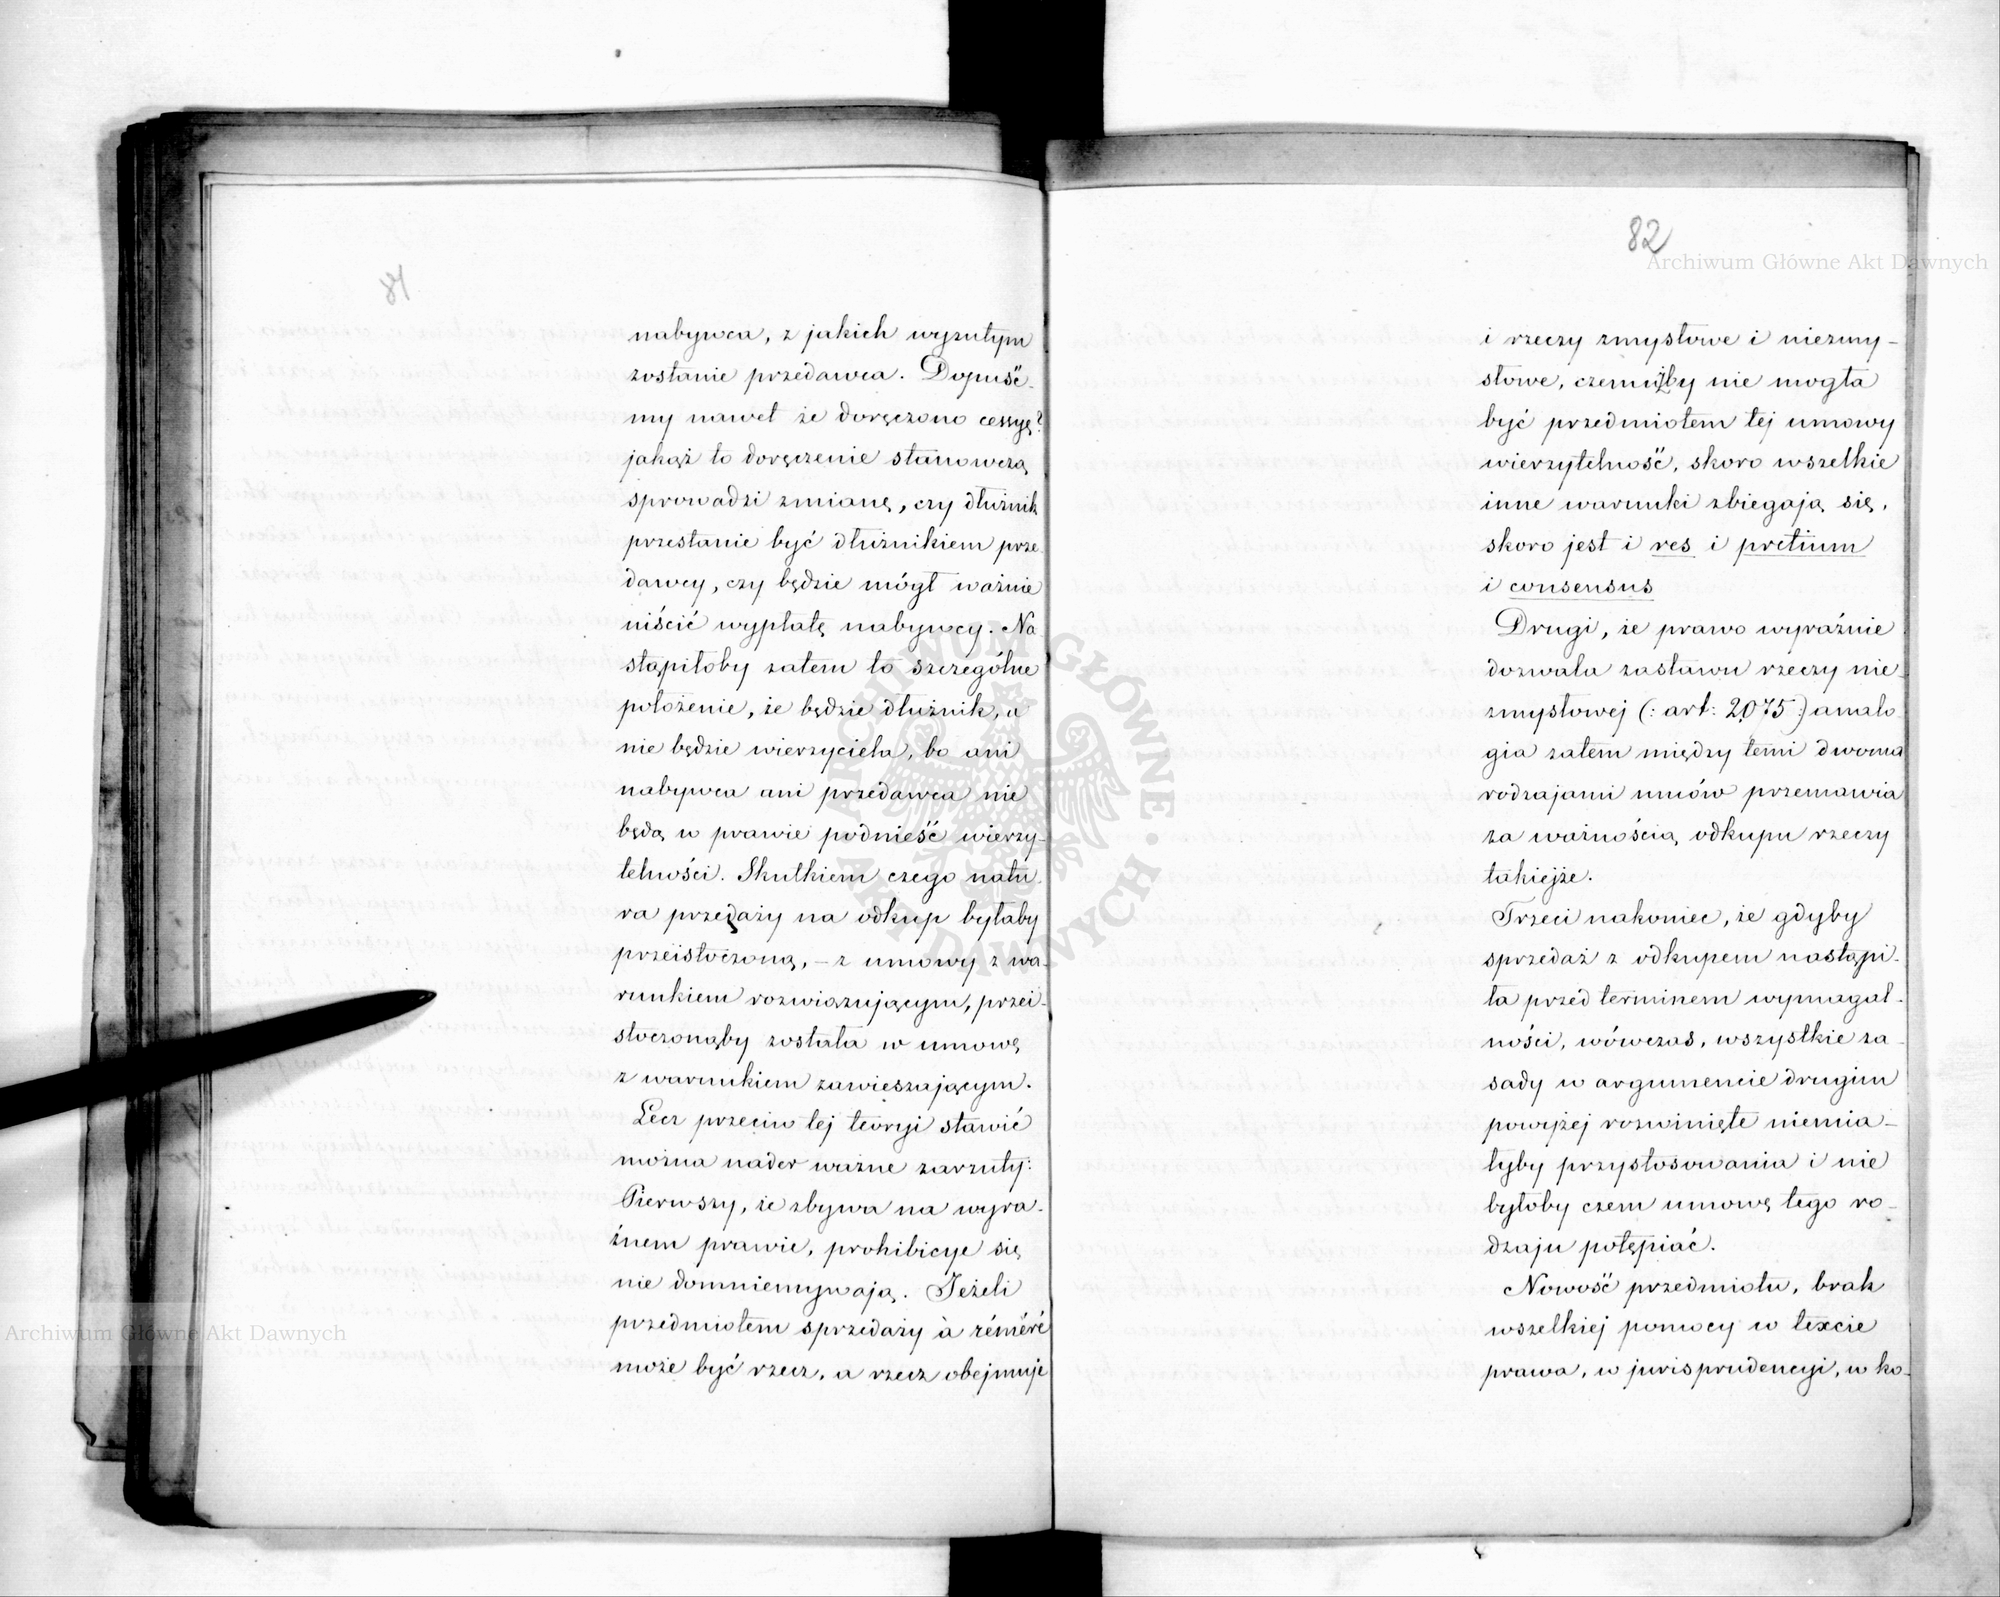 81
nabywca, z jakich wyzutym
zostanie przedawca. Dopuść-
my nawet że doręczono cessyę?
jakąż to doręczenie stanowczą
sprowadzi zmianę, czy dłużnik
przestanie być dłużnikiem prze-
dawcy, czy będzie mógł ważnie
uiścić wypłatę nabywcy. Na-
stąpiłoby zatem to szczególne
położenie, że będzie dłużnik, a
nie będzie wierzyciela, bo ani
nabywca ani przedawca nie
będą w prawie podnieść wierzy-
telności. Skutkiem czego natu-
ra przedaży na odkup byłaby
przeistoczoną, – z umowy z wa-
runkiem rozwiązującym, przei-
stoczonąby została w umowę
z warunkiem zawieszającym.
Lecz przeciw tej teoryi stawić
można nader ważne zarzuty:
Pierwszy, że zbywa na wyra-
źnem prawie, prohibicye się
nie domniemywają. Jeżeli
przedmiotem sprzedaży à réméré
może być rzecz, a rzecz obejmuje
82
i rzeczy zmysłowe i niezmy-
słowe, czemużby nie mogła
być przedmiotem tej umowy
wierzytelność, skoro wszelkie
inne warunki zbiegają się,
skoro jest i res i pretium
i consensus
Drugi, że prawo wyraźnie
dozwala zastawu rzeczy nie-
zmysłowej (: art: 2075 :) analo-
gia zatem między temi dwoma
rodzajami umów przemawia
za ważnością odkupu rzeczy
takiejże.
Trzeci nakoniec, że gdyby
sprzedaż z odkupem nastąpi-
ła przed terminem wymagal-
ności, wówczas, wszystkie za-
sady w argumencie drugim
powyżej rozwinięte niemia-
łyby przystosowania i nie
byłoby czem umowę tego ro-
dzaju potępiać.
Nowość przedmiotu, brak
wszelkiej pomocy w texcie
prawa, w jurisprudencyi, w ko-
Archiwum Główne Akt Dawnych
Archiwum Główne Akt Dawnych
ARCHIWUM GŁÓWNE AKT DAWNYCH